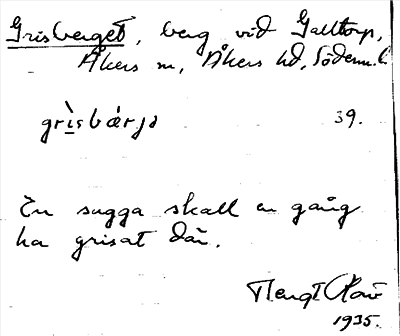 Grisberget, berg vid Galltorp,
Åkers sn, Åkers hd, Söderm. l.
grìsbárjə 39.
En sugga skall en gång
ha grisat där.
Bengt
1935.